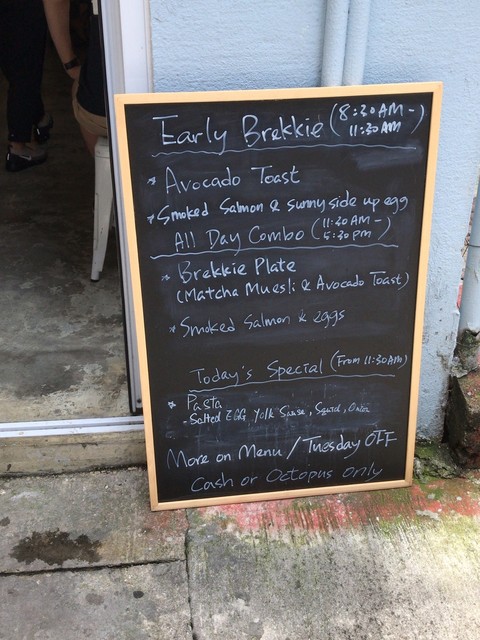 Early Brekkie (8:30AM-
11:30AM)
* Avocado Toast
* Smoked Salmon & sunny side up egg
All Day Combo (11:30AM-
5:30pm)
* Brekkie Plate
(Matcha Muesli & Avocado Toast)
* Smoked Salmon & eggs
Today's Special (From 11:30AM)
* Pasta
- Salted Egg Yolk Sause, Squid, Onion
More on Menu / Tuesday OFF
Cash or Octopus Only